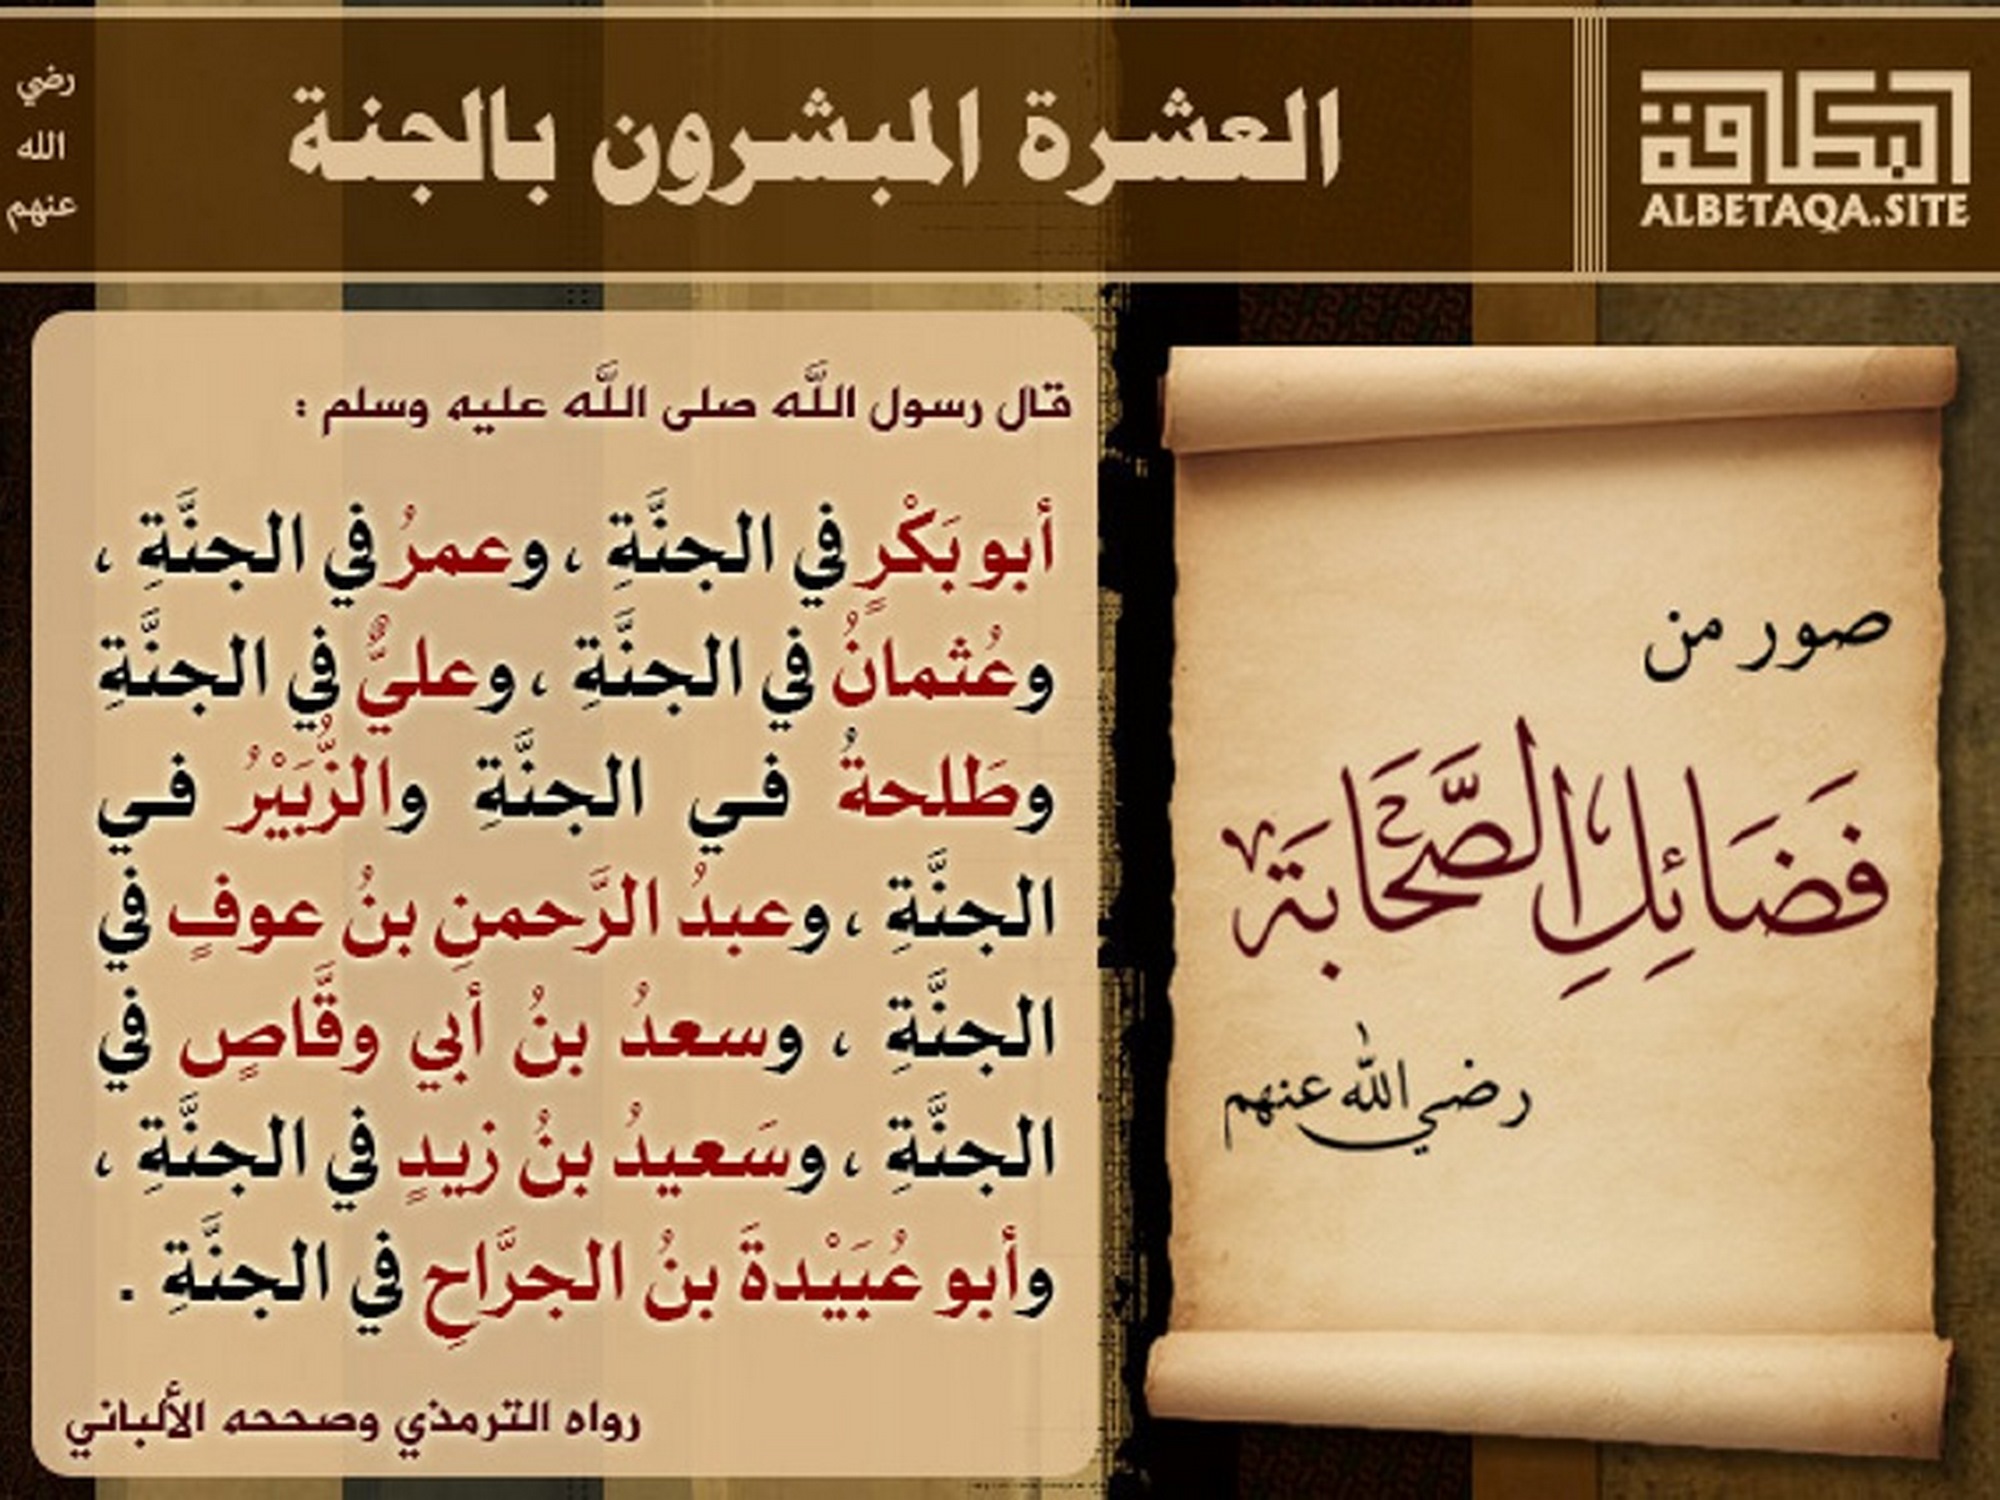 البطاقة
ALBETAQA.SITE
العشرة المبشرون بالجنة
رضي
الله
عنهم
صور من
فَضَائِلِ الصَّحَابَة
رضي الله عنهم
قال رسول اللَّه صلى اللَّه عليه وسلم :
أبو بَكْرٍ في الجنَّةِ ، وعمرُ في الجنَّةِ ،
وعُثمانُ في الجنَّةِ ، وعليٌّ في الجنَّةِ
وطَلحةُ في الجنَّةِ والزُّبَيْرُ في
الجنَّةِ ، وعبدُ الرَّحمنِ بنُ عوفٍ في
الجنَّةِ ، وسعدُ بنُ أبي وقَّاصٍ في
الجنَّةِ ، وسَعيدُ بنُ زيدٍ في الجنَّةِ ،
وأبو عُبَيْدةَ بنُ الجرَّاحِ في الجنَّةِ .
رواه الترمذي وصححه الألباني